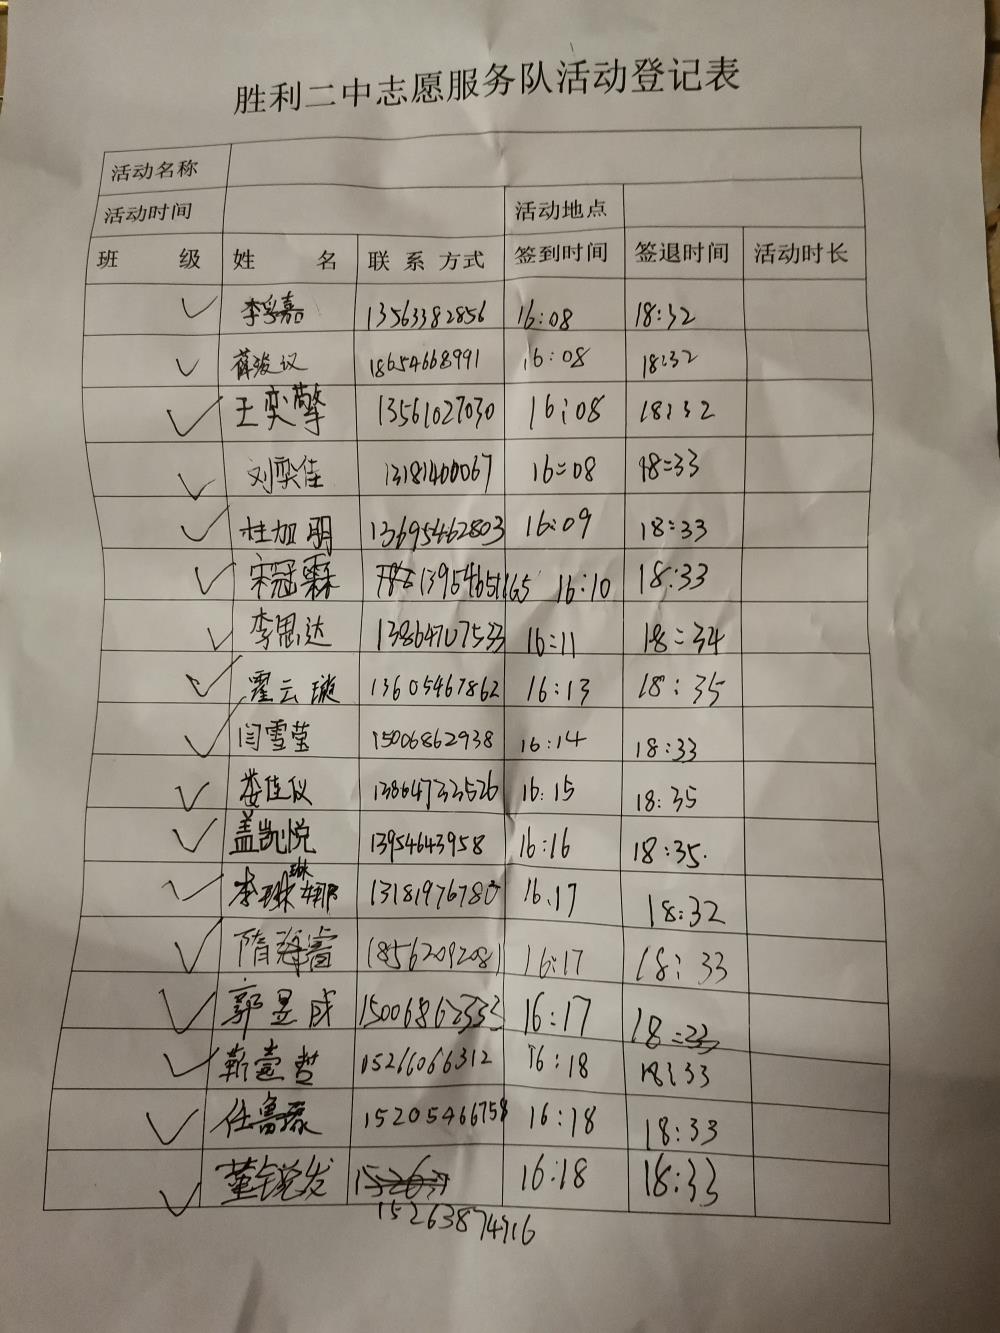 胜利二中志愿服务队活动登记表
活动名称
活动时间 活动地点
班 级 姓 名 联 系 方式 签到时间 签退时间 活动时长
李孚嘉 13563382856 16:08 18:32
薛浚议 18654668991 16:08 18:32
王奕擎 13561027030 16:08 18:32
刘奕佳 13181400067 16:08 18:33
杜加明 13695462803 16:09 18:33
宋冠霖 13954651165 16:10 18:33
李思达 13864707533 16:11 18:34
霍云璇 13605467862 16:13 18:35
闫雪莹 15006862938 16:14 18:33
娄佳仪 13864733526 16:15 18:35
盖凯悦 13954643958 16:16 18:35.
李琳娜 13181976780 16.17 18:32
隋 睿 18562092081 16:17 18:33
郭昱成 15006862333 16:17 18:33
靳壹哲 15266066312 16:18 18:33
任鲁 15205466758 16:18 18:33
董锐发 16:18 18:33
15263874916